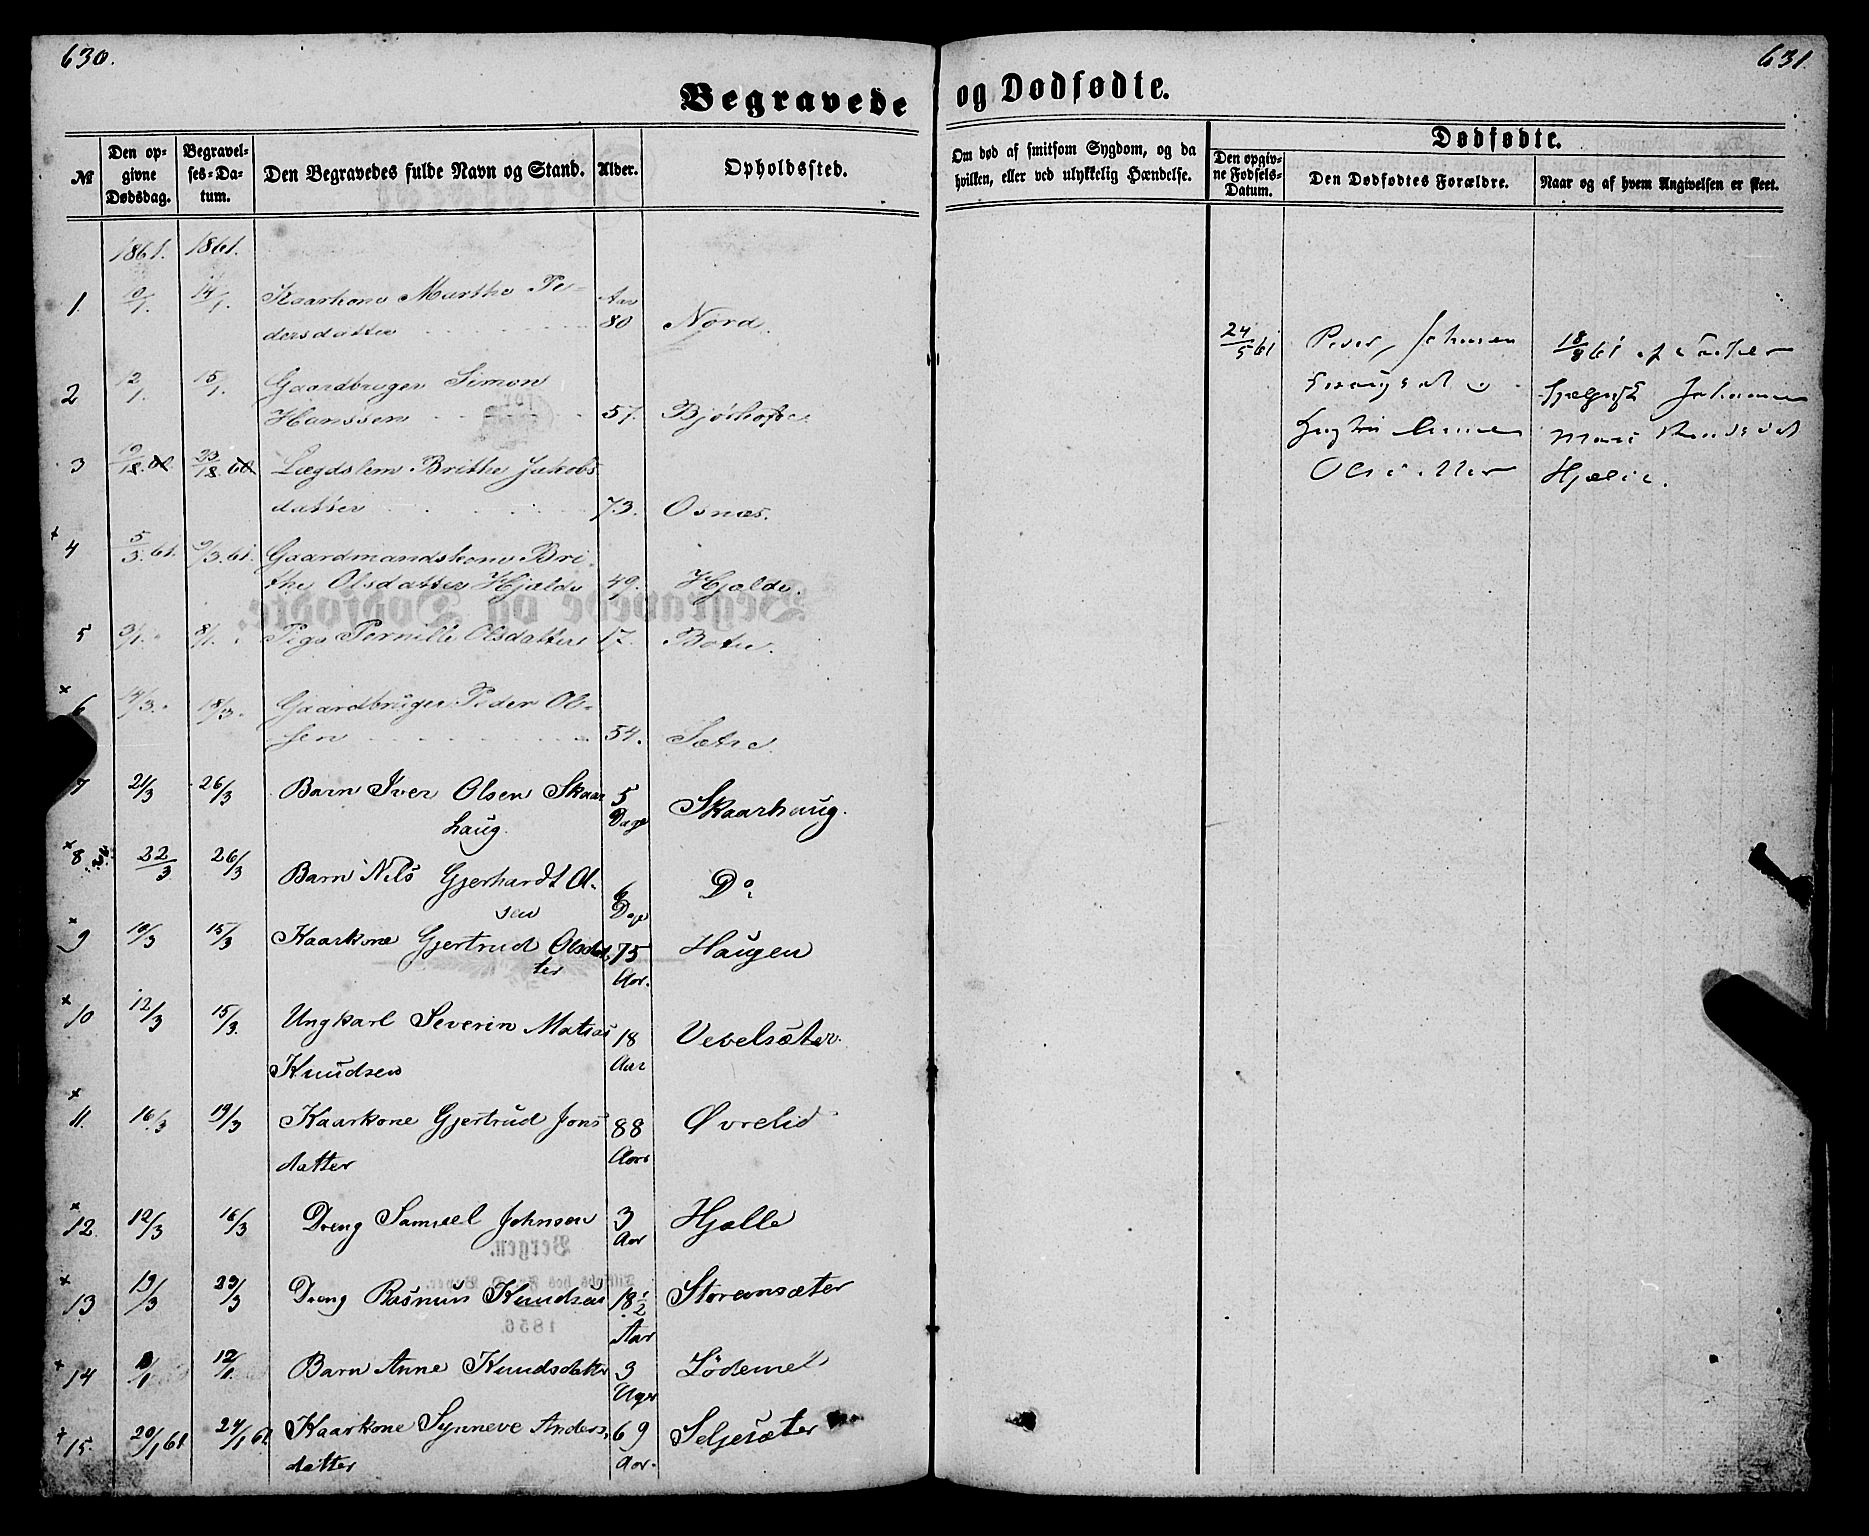 630.
631
Begravede
og Dødfødte.
№
Den opgivne Dødsdag.
Begravelses-Datum.
Den Begravedes fulde Navn og Stand.
Alder.
Opholdssted.
Om død af smitsom Sygdom, og da hvilken, eller ved ulykkelig Hændelse.
Dødfødte.
Den opgivne Fødsels-Datum.
Den Dødfødtes Forældre.
Naar og af hvem Angivelsen er skeet.
1861. 1861.
1. 10/1. 14/1. Kaarkone Marthe Pe- Aar
dersdatter 80 Nord.
2 12/1. 15/1. Gaardbruger Simon
Hanssen 57.
3 Lægdslem Brithe Jakobs
datter 73. Osnæs.
+ 4 5/3 61. 9/3 61. Gaardmandskone Bri-
the Olsdatter Hjælde 49. Hjelde.
5 3/1. 8/1. Pige Pernille Olsdatter 17.
× 6 14/3. 18/3. Gaardbruger Peder Ol-
sen 54. Sætre
7 21/3 26/3 Barn Iver Olsen Skaar 5 Skaarhaug.
haug. Dage
× 8 22/3 26/3 Barn Nils Gjerhardt Ol- 6 Do
sen Dage
× 9 10/3 15/3 Kaarkone Gjertrud Olsdat 75 Haugen
ter Aar.
× 10 12/3 15/3. Ungkarl Severin Matias 18 Vevelsæter.
Knudsen Aar
× 11. 16/3 19/3 Kaarkone Gjertrud Jons 88 Øvrelid
datter Aar
× 12. 12/3 16/3 Dreng Samuel Johnsen 3 Hjelle
Aar
× 13 19/3 23/3 Dreng Rasmus Knudsen 18 1/2 Storansæter
Aar
+ 14 12/1 Barn Anne Knudsdatter 3 Lødemel
Uger
+ 15. 20/1 61 24/1 61 Kaarkone Synneve Anders 69 Seljesæter
datter Aar.
24/5 61 Peder Johnsen 18/8 61 af
Olsdatter Hjelle.